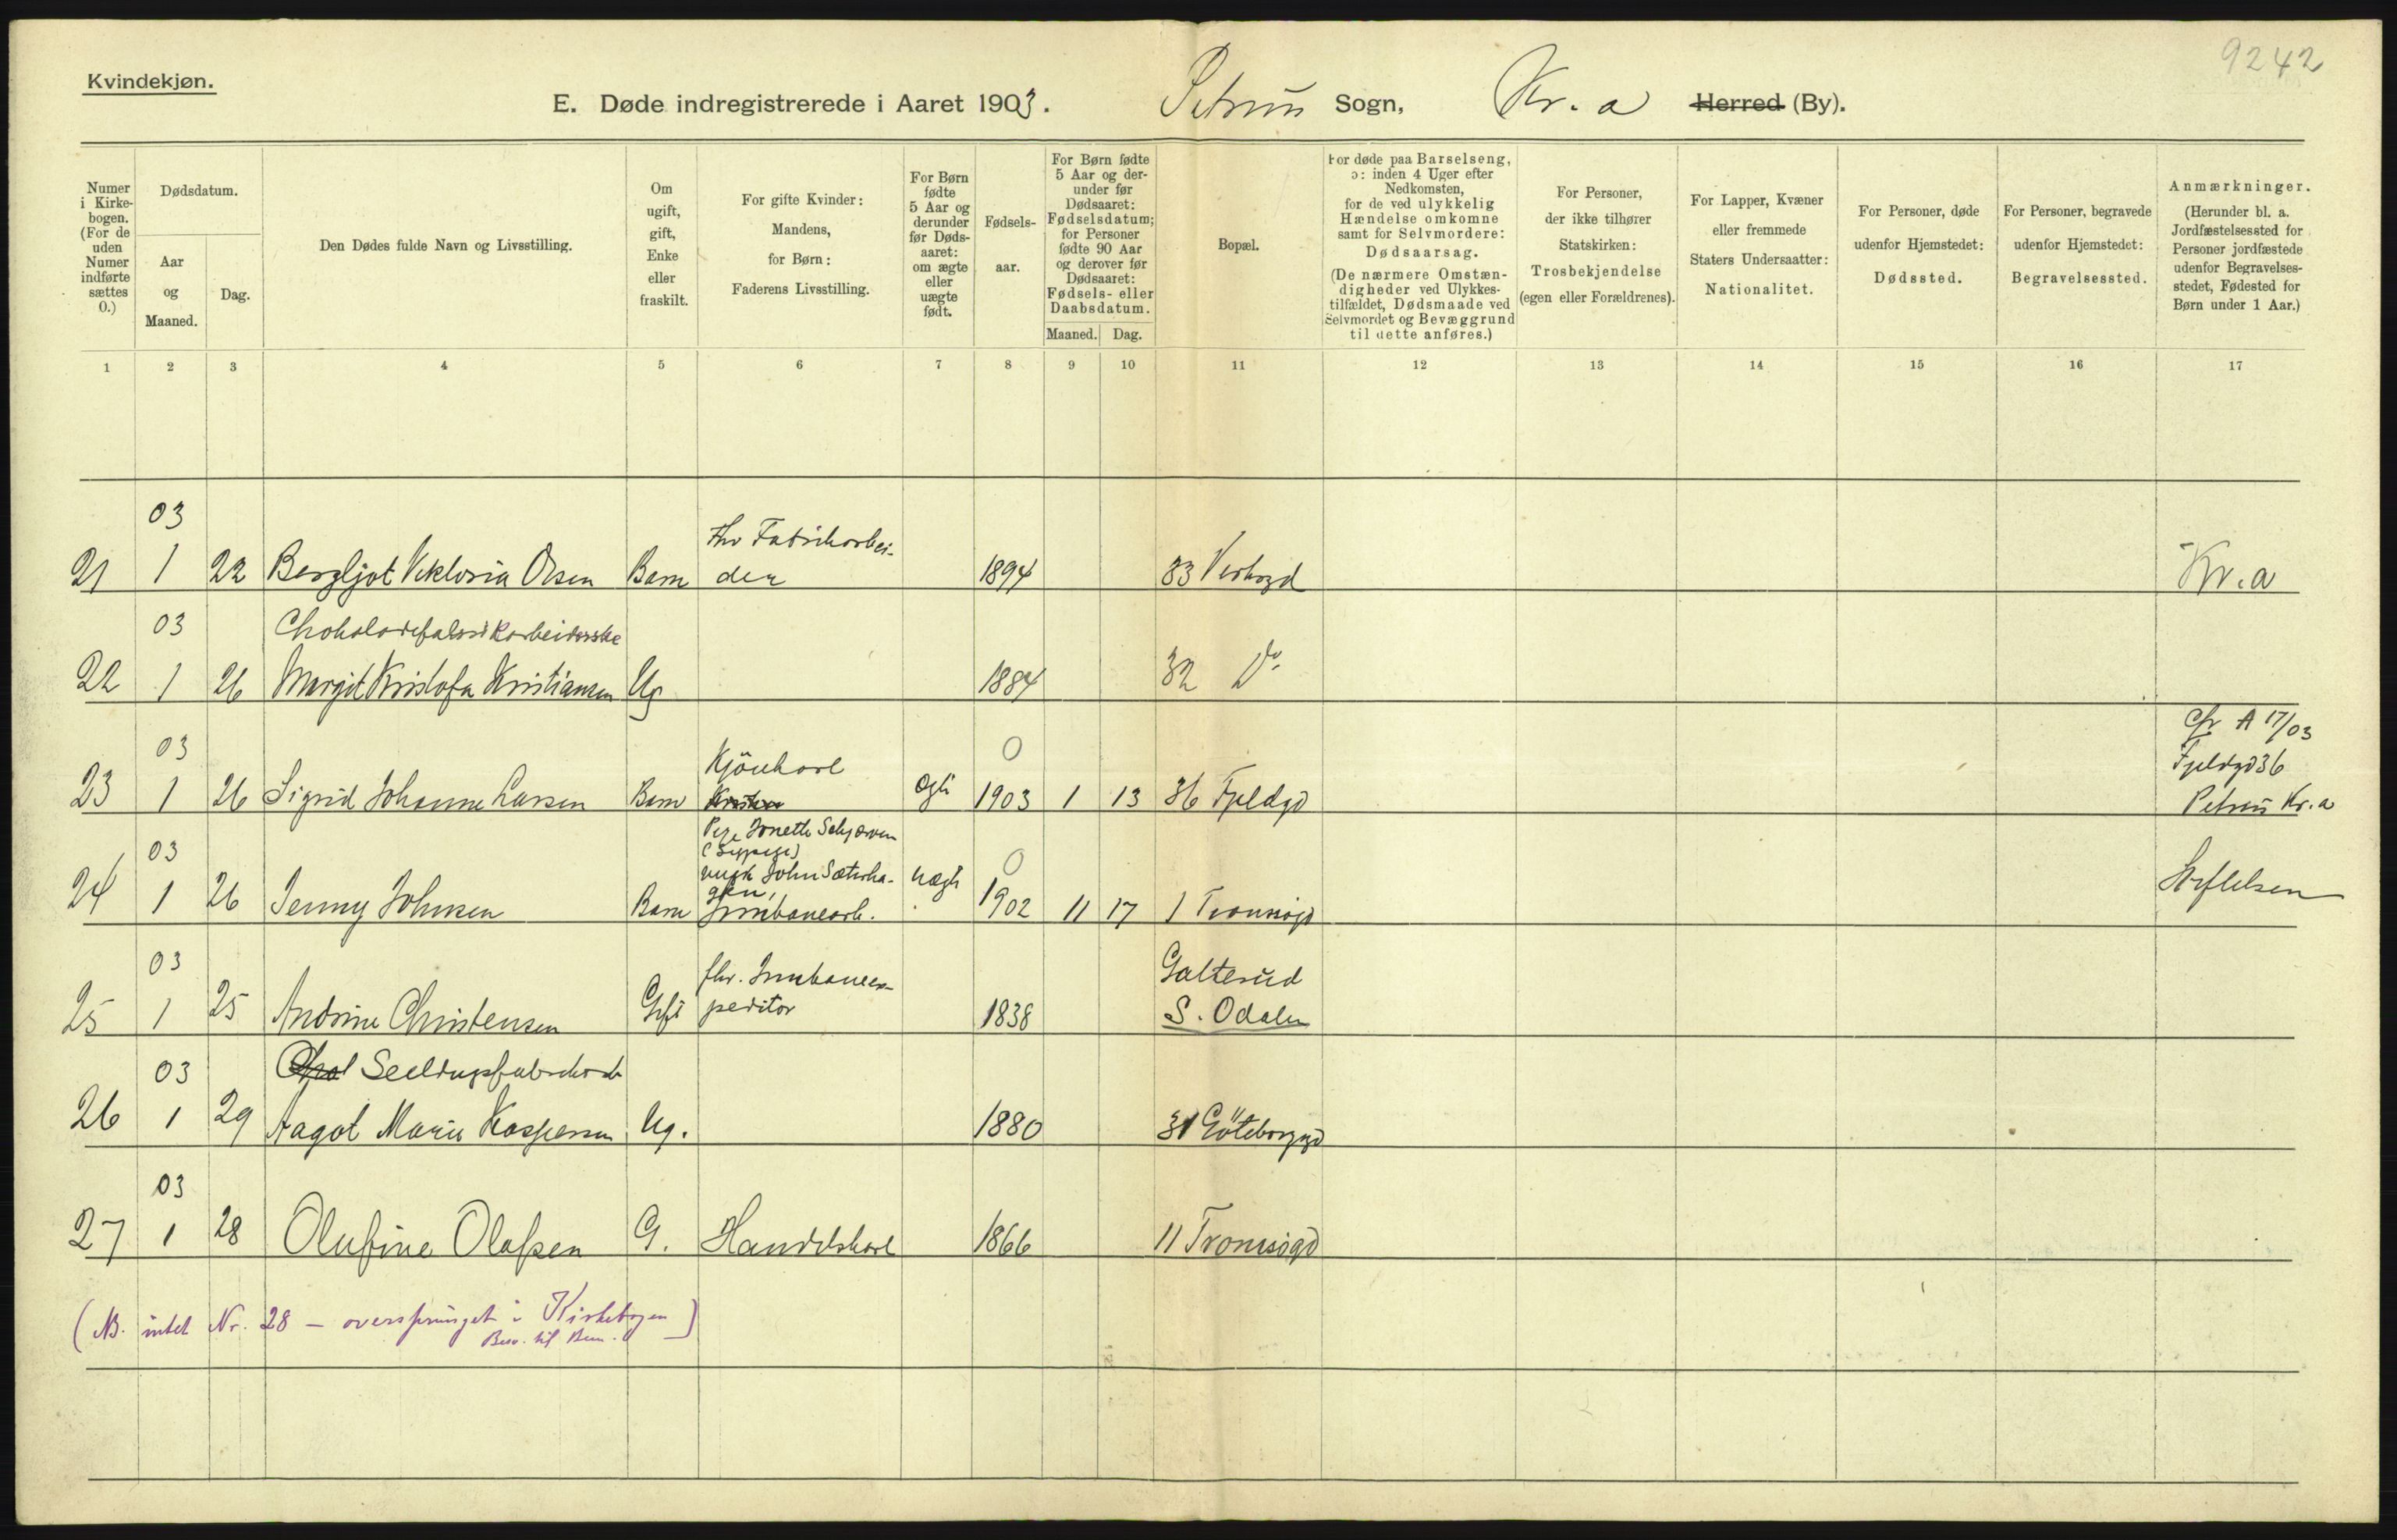 9242
Kvindekjøn.
E. Døde indregistrerede i Aaret 1903. Petrus Sogn, Kr.a Herred (By).
Numer i Kirkebogen. (For de uden Numer indførte sættes 0.)
Dødsdatum.
Aar og Maaned.
Dag.
Den Dødes fulde Navn og Livsstilling.
Om ugift, gift, Enke eller fraskilt.
For gifte Kvinder: Mandens, for Børn: Faderens Livsstilling.
For Børn fødte 5 Aar og derunder før Dødsaaret: om ægte eller uægte født.
Fødselsaar.
For Børn fødte 5 Aar og derunder før Dødsaaret: Fødselsdatum; for Personer fødte 90 Aar og derover før Dødsaaret: Fødsels- eller Daabsdatum.
Maaned. Dag.
Bopæl.
For døde paa Barselseng, ɔ: inden 4 Uger efter Nedkomsten, for de ved ulykkelig Hændelse omkomne samt for Selvmordere: Dødsaarsag. (De nærmere Omstændigheder ved Ulykkestilfældet, Dødsmaade ved Selvmordet og Bevæggrund til dette anføres.)
For Personer, der ikke tilhører Statskirken: Trosbekjendelse (egen eller Forældrenes).
For Lapper, Kvæner eller fremmede Staters Undersaatter: Nationalitet.
For Personer, døde udenfor Hjemstedet: Dødssted.
For Personer, begravede udenfor Hjemstedet: Begravelsessted.
Anmærkninger. (Herunder bl. a. Jordfæstelsessted for Personer jordfæstede udenfor Begravelsesstedet, Fødested for Børn under 1 Aar.)
1 2 3 4 5 6 7 8 9 10 11 12 13 14 15 16 17
03
fhv Fabrikarbei-
21 1 22 Bergljot Viktoria Olsen Barn der 1894 33 Verksgd Kr.a
03 Chokoladefabrikarbeiderske
22 1 26 Margit Kristofa Kristiansen Ug 1884 32 Do
03 Kjørekarl 0 Cfr A 17/03
Fjeldgd 36
23 1 26 Sigrid Johanne Larsen Barn ægte 1903 1 13 36 Fjeldgd Petrus Kr.a
Pige Jonette
(Sypige)
03 John Sæterha- uægte 0
gen,
24 1 26 Jenny Johnsen Barn Jernbanearb. 1902 11 17 1 Tromsøgd Stiftelsen
03 fhv. Jernbaneex- Galterud
25 1 25 Andrine Christensen Gift peditor 1838 S. Odalen
03
26 1 29 Aagot Marie Kaspersen Ug. 1880 31 Göteborggd
03
27 1 28 Olufine Olafsen G. Handelskarl 1866 11 Tromsøgd
(NB. intet Nr. 28 – oversprunget i Kirkebogen)